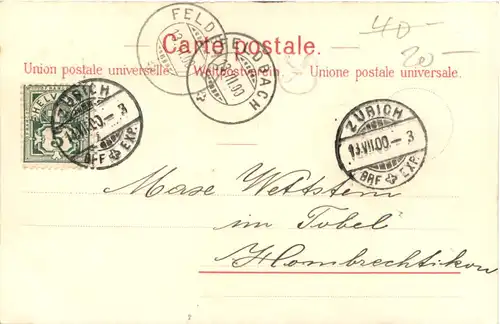 40-
20-
Carte postale.
Union postale universelle. Weltpostverein. Unione postale universale.
FELDBACH
13.VII.00
FELDBACH
13.VII.00
HELVETIA
5
ZÜRICH
13.VII.00.-3
BRF EXP.
ZÜRICH
13.VII.00.-3
BRF EXP.
Mase Wettstein
im Tobel
Hombrechtikon